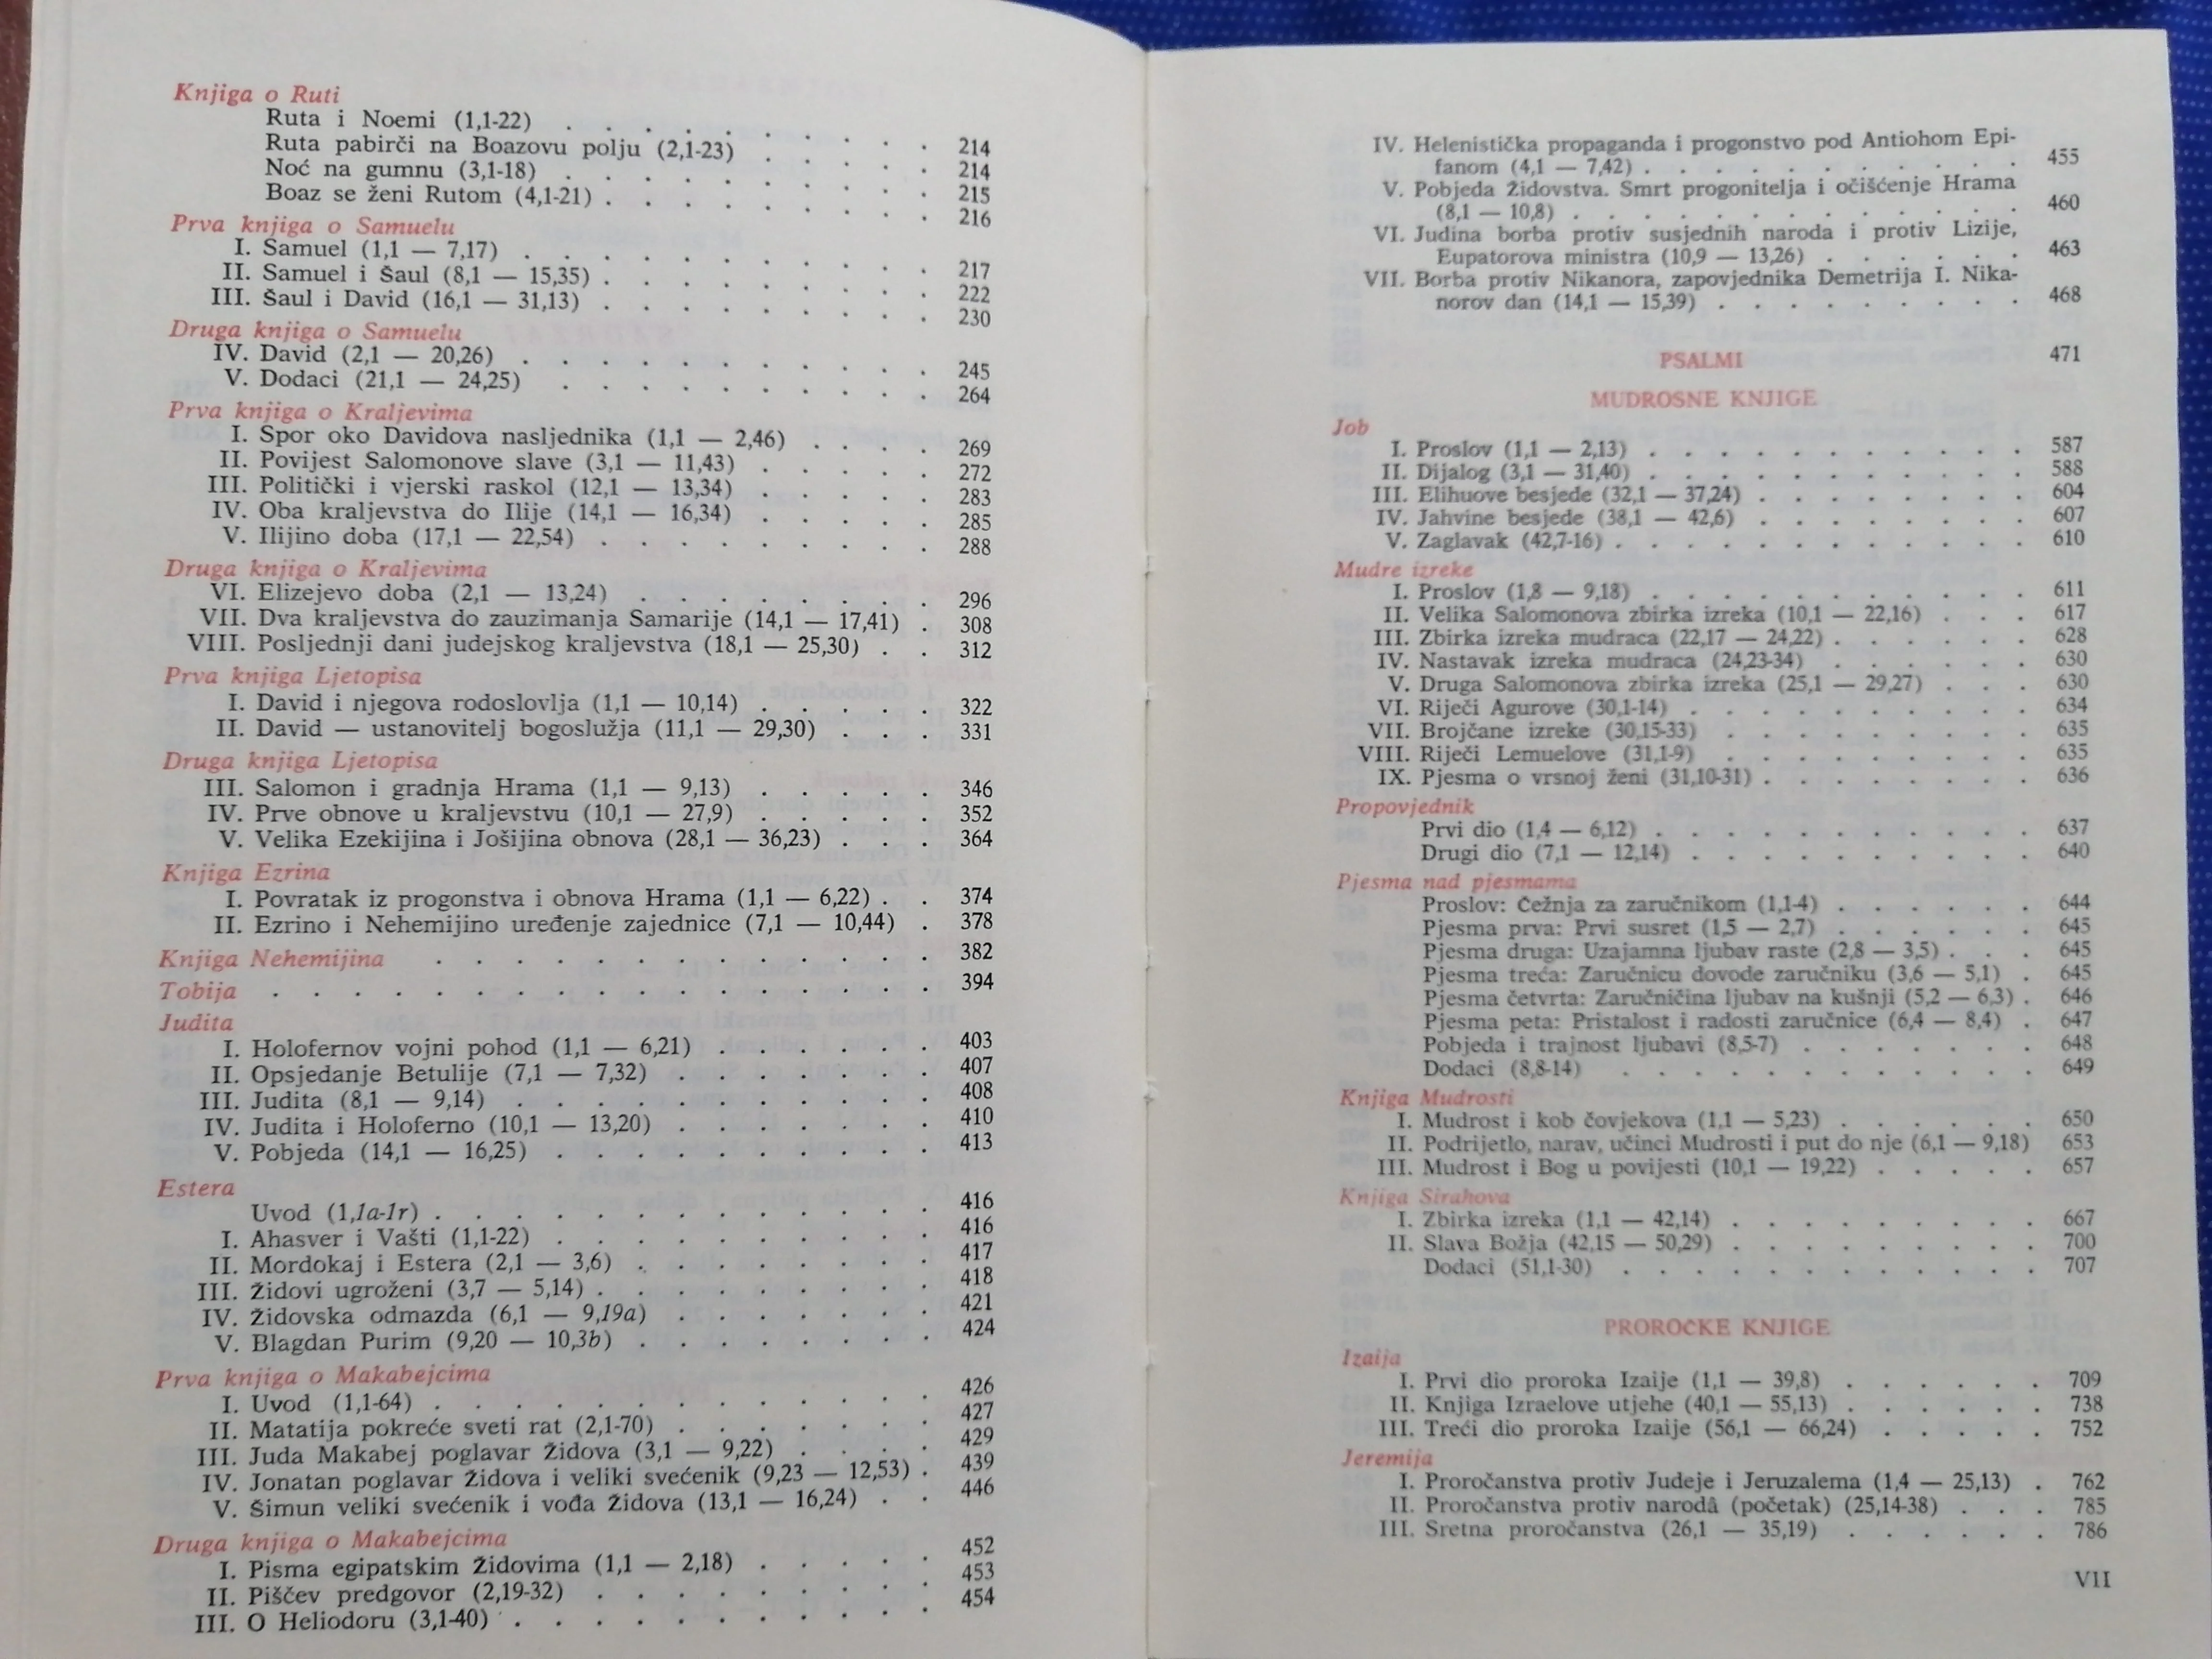 Knjiga o Ruti
Ruta i Noemi (1,1-22) . . . . . . . . . 214
Ruta pabirči na Boazovu polju (2,1-23) . . . . . 214
Noć na gumnu (3,1-18) . . . . . . . . . 215
Boaz se ženi Rutom (4,1-21) . . . . . . . . . 216
Prva knjiga o Samuelu
I. Samuel (1,1 — 7,17) . . . . . . . . . . . 217
II. Samuel i Šaul (8,1 — 15,35) . . . . . . . . . 222
III. Šaul i David (16,1 — 31,13) . . . . . . . . . 230
Druga knjiga o Samuelu
IV. David (2,1 — 20,26) . . . . . . . . . . . 245
V. Dodaci (21,1 — 24,25) . . . . . . . . . . 264
Prva knjiga o Kraljevima
I. Spor oko Davidova nasljednika (1,1 — 2,46) . . . . 269
II. Povijest Salomonove slave (3,1 — 11,43) . . . . . 272
III. Politički i vjerski raskol (12,1 — 13,34) . . . . . 283
IV. Oba kraljevstva do Ilije (14,1 — 16,34) . . . . . 285
V. Ilijino doba (17,1 — 22,54) . . . . . . . . . 288
Druga knjiga o Kraljevima
VI. Elizejevo doba (2,1 — 13,24) . . . . . . . . 296
VII. Dva kraljevstva do zauzimanja Samarije (14,1 — 17,41) . 308
VIII. Posljednji dani judejskog kraljevstva (18,1 — 25,30) . . 312
Prva knjiga Ljetopisa
I. David i njegova rodoslovlja (1,1 — 10,14) . . . . . 322
II. David — ustanovitelj bogoslužja (11,1 — 29,30) . . . 331
Druga knjiga Ljetopisa
III. Salomon i gradnja Hrama (1,1 — 9,13) . . . . . 346
IV. Prve obnove u kraljevstvu (10,1 — 27,9) . . . . . 352
V. Velika Ezekijina i Jošijina obnova (28,1 — 36,23) . . . 364
Knjiga Ezrina
I. Povratak iz progonstva i obnova Hrama (1,1 — 6,22) . . 374
II. Ezrino i Nehemijino uređenje zajednice (7,1 — 10,44) . 378
Knjiga Nehemijina . . . . . . . . . . . . . 382
Tobija . . . . . . . . . . . . . . . . . 394
Judita
I. Holofernov vojni pohod (1,1 — 6,21) . . . . . . 403
II. Opsjedanje Betulije (7,1 — 7,32) . . . . . . . 407
III. Judita (8,1 — 9,14) . . . . . . . . . . . 408
IV. Judita i Holoferno (10,1 — 13,20) . . . . . . . 410
V. Pobjeda (14,1 — 16,25) . . . . . . . . . . 413
Estera
Uvod (1,1a-1r) . . . . . . . . . . . . . 416
I. Ahasver i Vašti (1,1-22) . . . . . . . . . . 416
II. Mordokaj i Estera (2,1 — 3,6) . . . . . . . . 417
III. Židovi ugroženi (3,7 — 5,14) . . . . . . . . . 418
IV. Židovska odmazda (6,1 — 9,19a) . . . . . . . 421
V. Blagdan Purim (9,20 — 10,3b) . . . . . . . . 424
Prva knjiga o Makabejcima
I. Uvod (1,1-64) . . . . . . . . . . . . . 426
II. Matatija pokreće sveti rat (2,1-70) . . . . . . . 427
III. Juda Makabej poglavar Židova (3,1 — 9,22) . . . . 429
IV. Jonatan poglavar Židova i veliki svećenik (9,23 — 12,53) . 439
V. Šimun veliki svećenik i vođa Židova (13,1 — 16,24) . . 446
Druga knjiga o Makabejcima
I. Pisma egipatskim Židovima (1,1 — 2,18) . . . . . 452
II. Piščev predgovor (2,19-32) . . . . . . . . . 453
III. O Heliodoru (3,1-40) . . . . . . . . . . . 454
IV. Helenistička propaganda i progonstvo pod Antiohom Epi-
fanom (4,1 — 7,42) . . . . . . . . . . 455
V. Pobjeda Židovstva. Smrt progonitelja i očišćenje Hrama
(8,1 — 10,8) . . . . . . . . . . . . . 460
VI. Judina borba protiv susjednih naroda i protiv Lizije,
Eupatorova ministra (10,9 — 13,26) . . . . . . 463
VII. Borba protiv Nikanora, zapovjednika Demetrija I. Nika-
norov dan (14,1 — 15,39) . . . . . . . . . 468
PSALMI 471
MUDROSNE KNJIGE
Job
I. Proslov (1,1 — 2,13) . . . . . . . . . . . 587
II. Dijalog (3,1 — 31,40) . . . . . . . . . . . 588
III. Elihuove besjede (32,1 — 37,24) . . . . . . . . 604
IV. Jahvine besjede (38,1 — 42,6) . . . . . . . . 607
V. Zaglavak (42,7-16) . . . . . . . . . . . . 610
Mudre izreke
I. Proslov (1,8 — 9,18) . . . . . . . . . . . 611
II. Velika Salomonova zbirka izreka (10,1 — 22,16) . . . 617
III. Zbirka izreka mudraca (22,17 — 24,22) . . . . . . 628
IV. Nastavak izreka mudraca (24,23-34) . . . . . . 630
V. Druga Salomonova zbirka izreka (25,1 — 29,27) . . . 630
VI. Riječi Agurove (30,1-14) . . . . . . . . . . 634
VII. Brojčane izreke (30,15-33) . . . . . . . . . 635
VIII. Riječi Lemuelove (31,1-9) . . . . . . . . . 635
IX. Pjesma o vrsnoj ženi (31,10-31) . . . . . . . . 636
Propovjednik
Prvi dio (1,4 — 6,12) . . . . . . . . . . . 637
Drugi dio (7,1 — 12,14) . . . . . . . . . . 640
Pjesma nad pjesmama
Proslov: Čežnja za zaručnikom (1,1-4) . . . . . . 644
Pjesma prva: Prvi susret (1,5 — 2,7) . . . . . . 645
Pjesma druga: Uzajamna ljubav raste (2,8 — 3,5) . . . 645
Pjesma treća: Zaručnicu dovode zaručniku (3,6 — 5,1) . 645
Pjesma četvrta: Zaručničina ljubav na kušnji (5,2 — 6,3) . 646
Pjesma peta: Pristalost i radosti zaručnice (6,4 — 8,4) . 647
Pobjeda i trajnost ljubavi (8,5-7) . . . . . . . 648
Dodaci (8,8-14) . . . . . . . . . . . . 649
Knjiga Mudrosti
I. Mudrost i kob čovjekova (1,1 — 5,23) . . . . . . 650
II. Podrijetlo, narav, učinci Mudrosti i put do nje (6,1 — 9,18) 653
III. Mudrost i Bog u povijesti (10,1 — 19,22) . . . . . 657
Knjiga Sirahova
I. Zbirka izreka (1,1 — 42,14) . . . . . . . . . 667
II. Slava Božja (42,15 — 50,29) . . . . . . . . . 700
Dodaci (51,1-30) . . . . . . . . . . . . 707
PROROČKE KNJIGE
Izaija
I. Prvi dio proroka Izaije (1,1 — 39,8) . . . . . . 709
II. Knjiga Izraelove utjehe (40,1 — 55,13) . . . . . . 738
III. Treći dio proroka Izaije (56,1 — 66,24) . . . . . 752
Jeremija
I. Proročanstva protiv Judeje i Jeruzalema (1,4 — 25,13) . 762
II. Proročanstva protiv narodâ (početak) (25,14-38) . . . 785
III. Sretna proročanstva (26,1 — 35,19) . . . . . . 786
VII